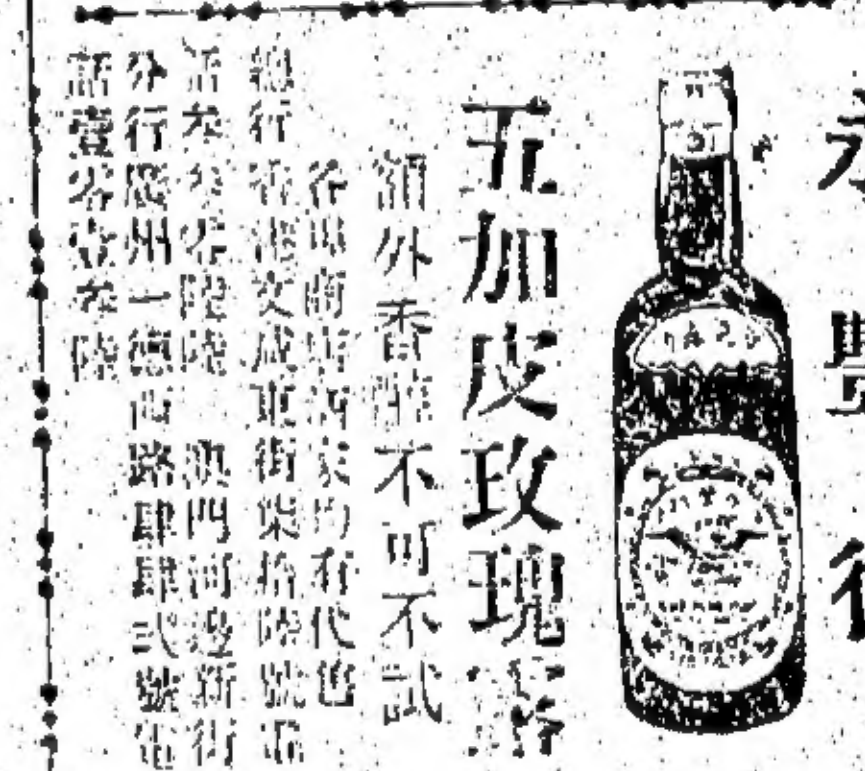 永豐行
五加皮玫瑰露
額外香醇不可不試
各埠商店酒家均有代售
總行香港文咸東街柒拾陸號電
話叁叁零陸陸 澳門河邊新街
分行廣州一德西路肆肆弍號電
話壹零壹叁陸